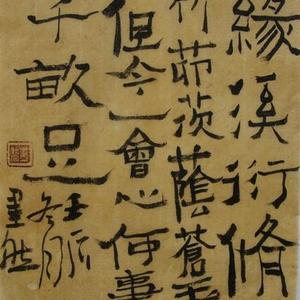 緣溪行脩
竹茆茨蔭蒼玉
但今一會心何事
千畝足
冬月